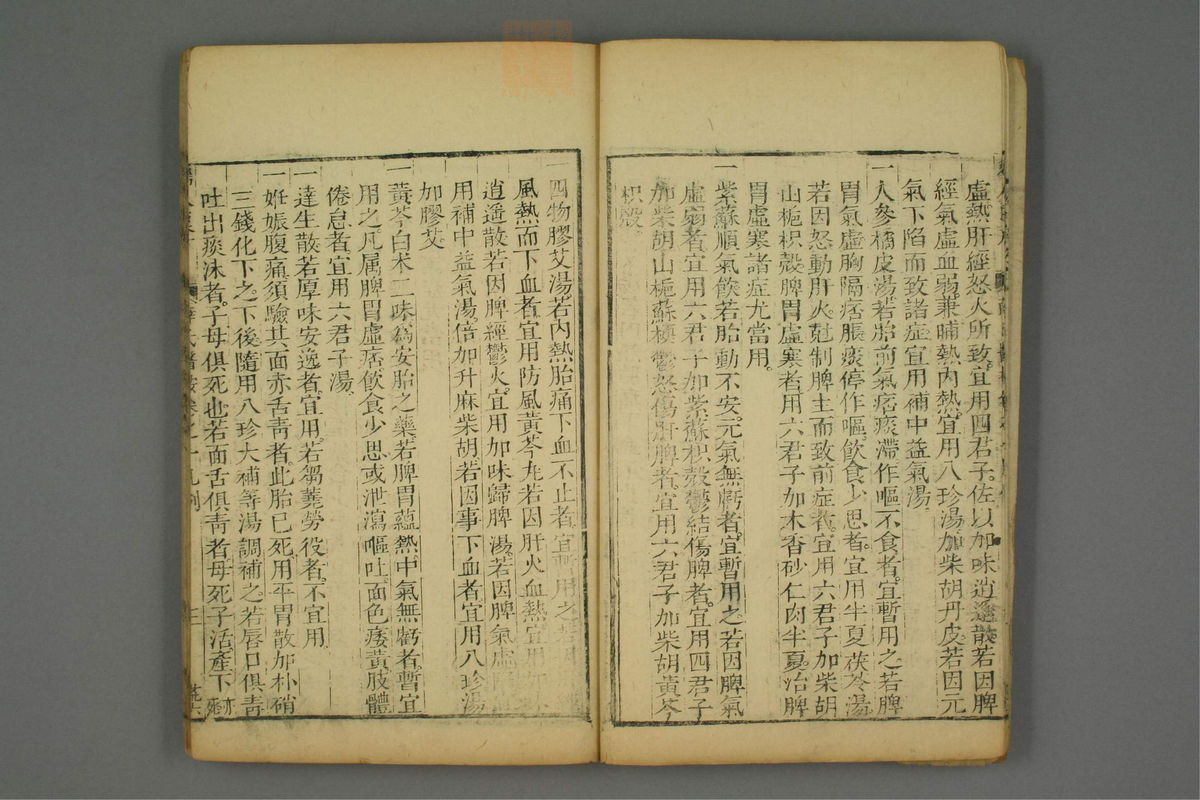 虛熱肝經怒火所致宜用四君子佐以加味逍遙散若因脾
經氣虛血弱兼晡熱內熱宜用八珍湯加柴胡丹皮若因元
氣下陷而致諸症宜用補中益氣湯
一人參橘皮湯若胎前氣痞痰滯作嘔不食者宜暫用之若脾
胃氣虛胸隔痞脹痰停作嘔飲食少思者宜用半夏茯苓湯
若因怒動肝火尅制脾主而致前症者宜用六君子加柴胡
山梔枳殼脾胃虛寒者用六君子加木香砂仁肉半夏治脾
胃虛寒諸症尤當用
一紫蘇順氣飲若胎動不安元氣無虧者宜暫用之若因脾氣
虛弱者宜用六君子加紫蘇枳殼鬱結傷脾者宜用四君子
加柴胡山梔蘇梗鬱怒傷肝脾者宜用六君子加柴胡黃芩
枳殼
一四物膠艾湯若內熱胎痛下血不止者宜暫用之
風熱而下血者宜用防風黃芩丸若因肝火血熱宜用加味
逍遙散若因脾經鬱火宜用加味歸脾湯若因脾氣虛
用補中益氣湯倍加升麻柴胡若因事下血者宜用八珍湯
加膠艾
一黃芩白朮二味為安胎之藥若脾胃蘊熱中氣無虧者暫宜
用之凡属脾胃虛痞飲食少思或泄瀉嘔吐面色痿黃肢體
倦怠者宜用六君子湯
一達生散若厚味安逸者宜用若芻蕘勞役者不宜用
一妊娠腹痛須驗其面赤舌青者此胎已死用平胃散加朴硝
三錢化下之下後隨用八珍大補等湯調補之若唇口俱青
吐出痰沫者子母俱死也若面舌俱青者母死子活產下亦死